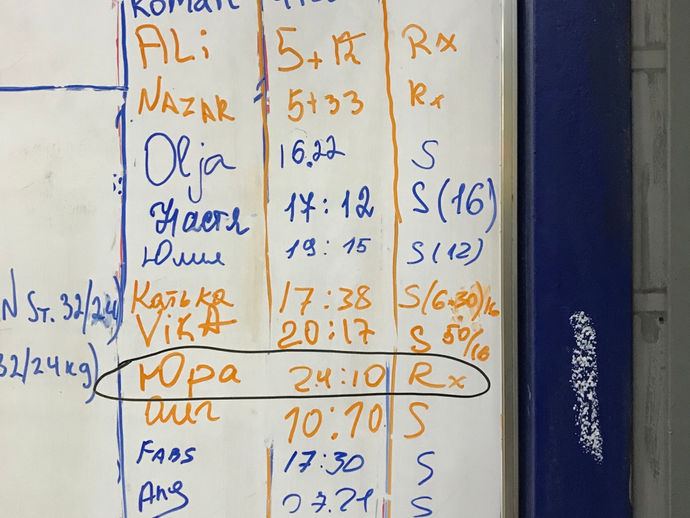 ALi 5+12 Rx
NAZAR 5+33 Rx
Olja 16.22 S
Настя 17:12 S(16)
Юлия 19:15 S(12)
N ST. 32/24) Катька 17:38 S(6×30)/16
VikA 20:17 S 50/16
32/24kg) Юра 24:10 Rx
10:10 S
FABS 17:30 S
Аня S